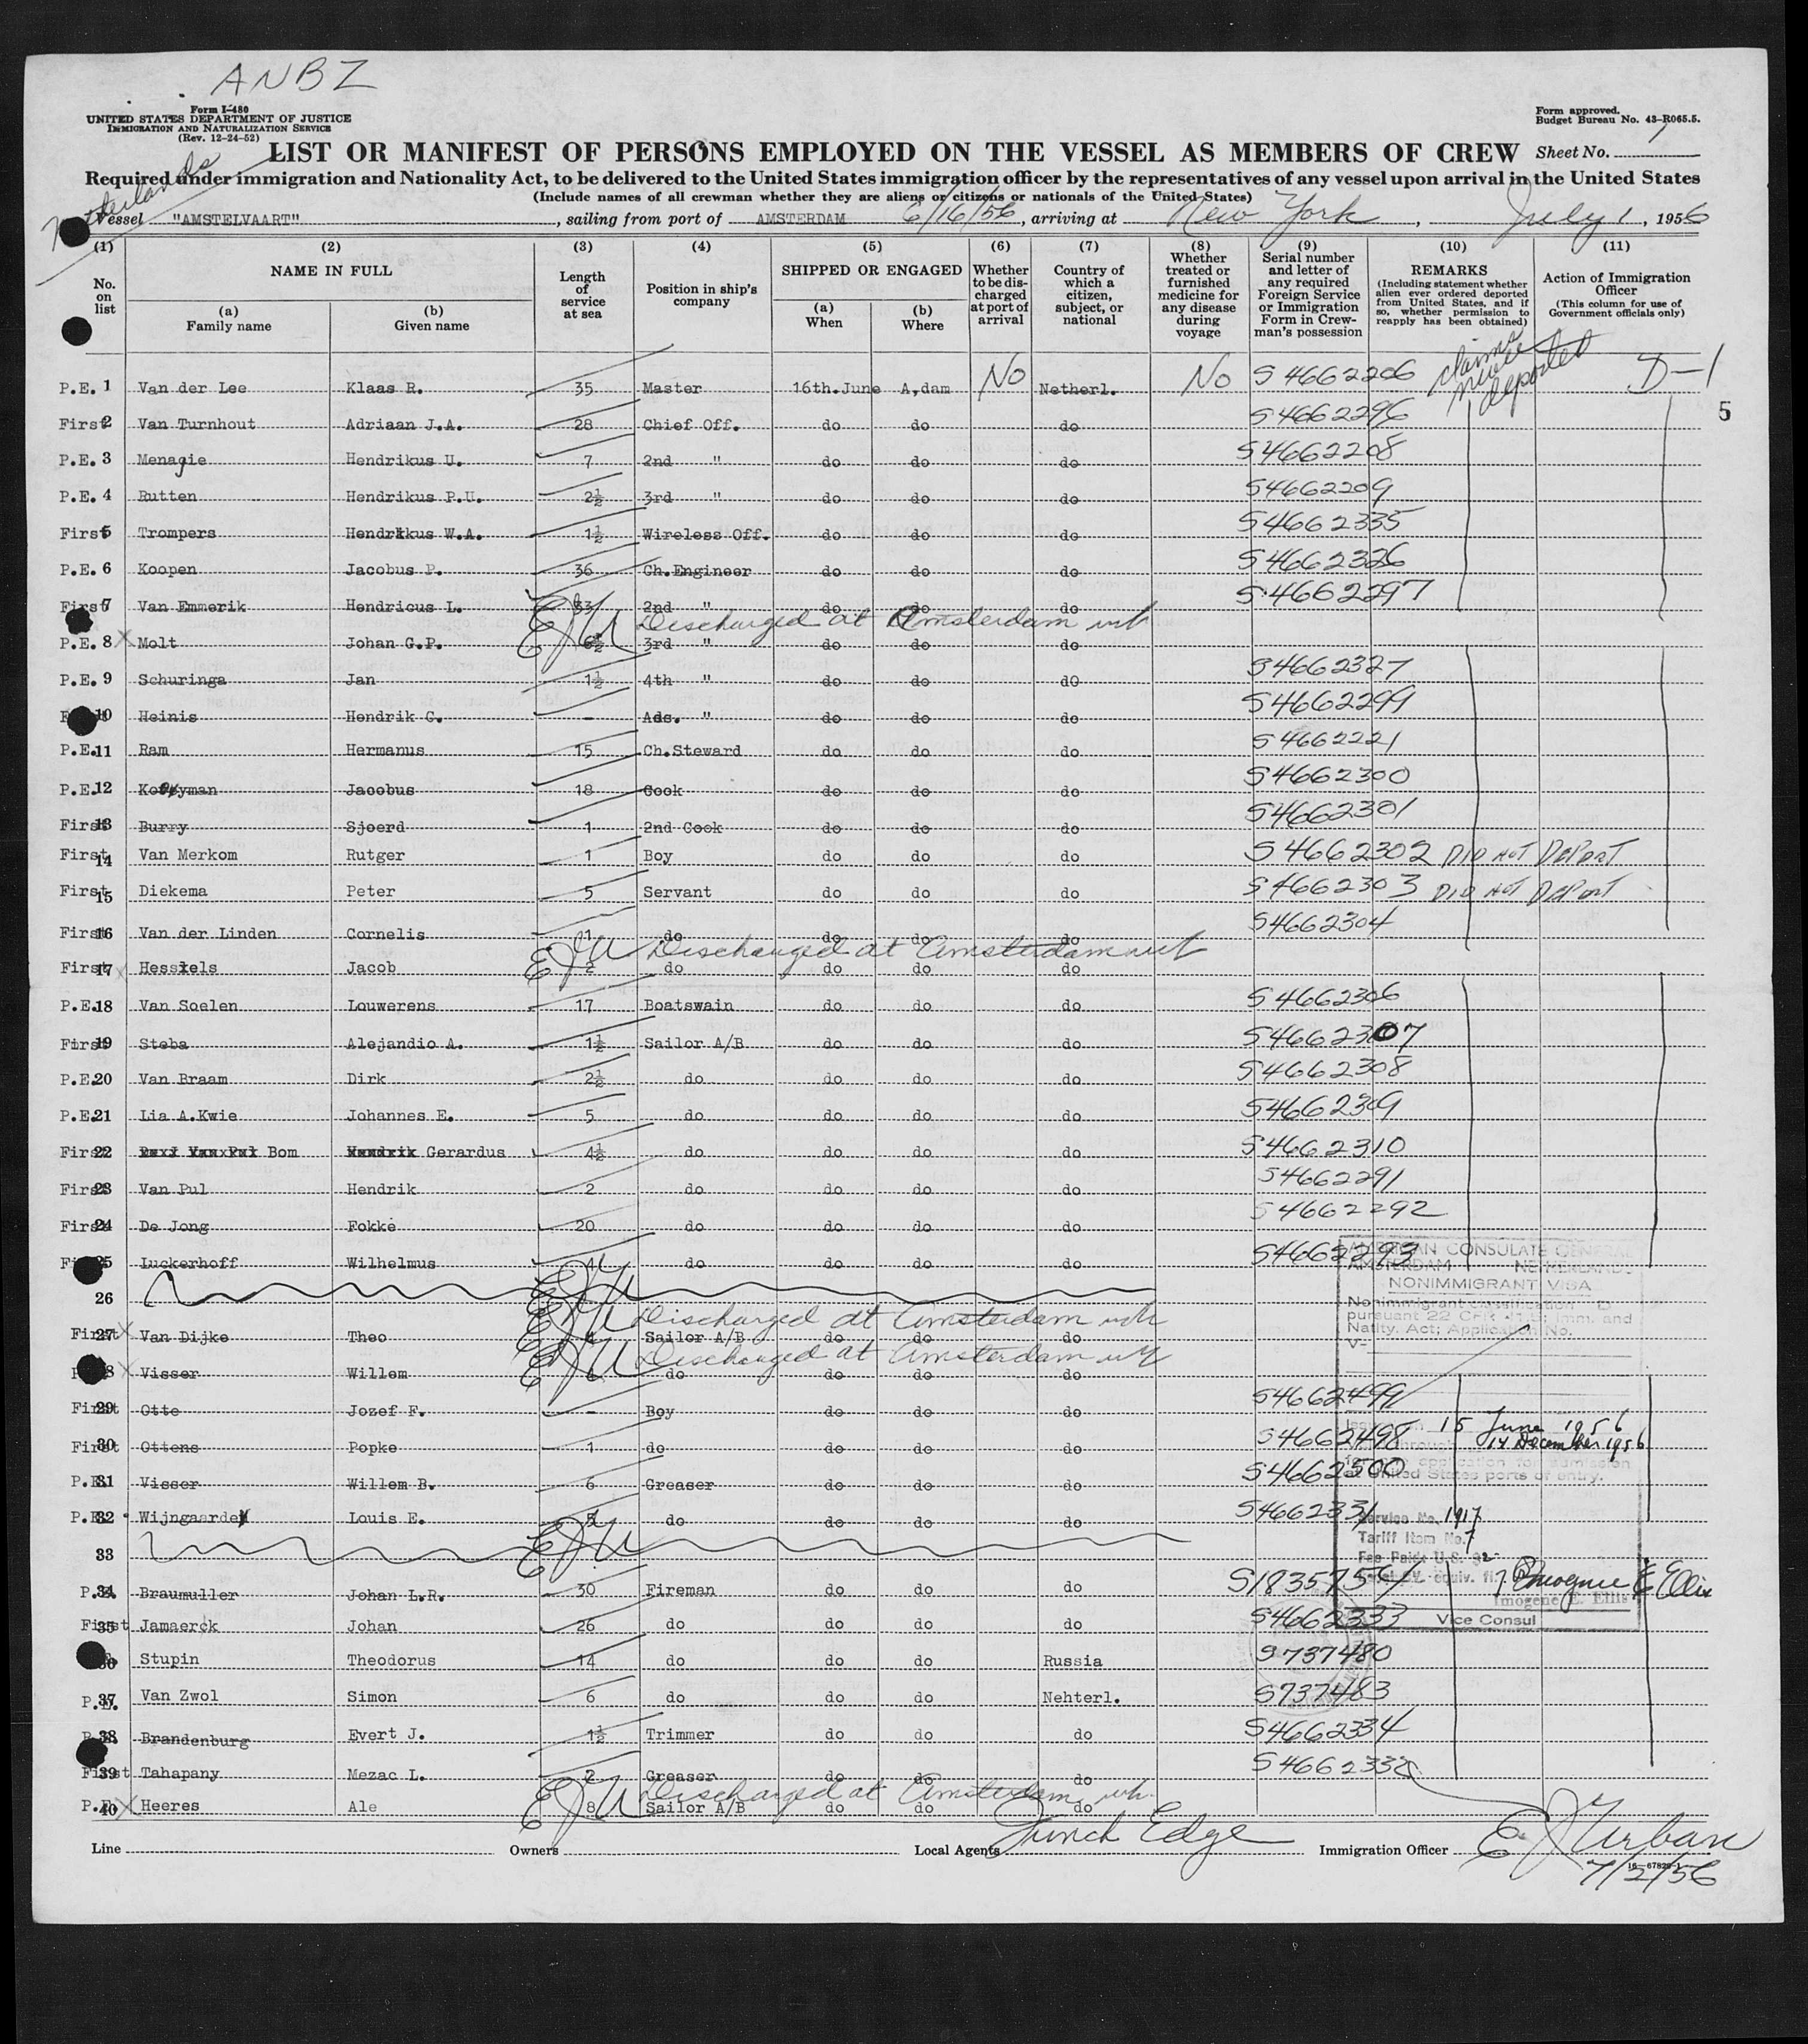 ANBZ
Form I-480
UNITED STATES DEPARTMENT OF JUSTICE
IMMIGRATION AND NATURALIZATION SERVICE
(Rev. 12-24-52)
Form approved.
Budget Bureau No. 43-R065.5.
LIST OR MANIFEST OF PERSONS EMPLOYED ON THE VESSEL AS MEMBERS OF CREW Sheet No. 1
Netherlands
Required under immigration and Nationality Act, to be delivered to the United States immigration officer by the representatives of any vessel upon arrival in the United States
(Include names of all crewman whether they are aliens or citizens or nationals of the United States)
Vessel "AMSTELVAART", sailing from port of AMSTERDAM 6/16/56, arriving at New York, July 1, 1956
(1) (2) (3) (4) (5) (6) (7) (8) (9) (10) (11)
No. on list
NAME IN FULL
(a) Family name
(b) Given name
Length of service at sea
Position in ship's company
SHIPPED OR ENGAGED
(a) When
(b) Where
Whether to be discharged at port of arrival
Country of which a citizen, subject, or national
Whether treated or furnished medicine for any disease during voyage
Serial number and letter of any required Foreign Service or Immigration Form in Crewman's possession
REMARKS
(Including statement whether alien ever ordered deported from United States, and if so, whether permission to reapply has been obtained)
Action of Immigration Officer
(This column for use of Government officials only)
P.E. 1 Van der Lee Klaas R. 35 Master 16th.June A,dam No Netherl. No S 4662206 claims never deported D-1
5
First 2 Van Turnhout Adriaan J.A. 28 Chief Off. do do do S4662296
P.E. 3 Menagie Hendrikus U. 7 2nd " do do do S4662208
P.E. 4 Rutten Hendrikus P.U. 2½ 3rd " do do do S4662209
First 5 Trompers Hendrikus W.A. 1½ Wireless Off. do do do S4662335
P.E. 6 Koopen Jacobus P. 36 Ch.Engineer do do do S4662326
First 7 Van Emmerik Hendricus L. 33 2nd " do do do S4662297
EJU Discharged at Amsterdam
P.E. 8 X Molt Johan G.P. 6½ 3rd " do do do
P.E. 9 Schuringa Jan 1½ 4th " do do dO S4662327
10 Heinis Hendrik C. - Ads. " do do do S4662299
P.E. 11 Ram Hermanus 15 Ch.Steward do do do S4662221
P.E. 12 Kooyman Jacobus 18 Cook do do do S4662300
First 13 Burry Sjoerd 1 2nd Cook do do do S4662301
First 14 Van Merkom Rutger 1 Boy do do do S4662302 DID NOT DEPART
First 15 Diekema Peter 5 Servant do do do S4662303 DID NOT DEPART
First 16 Van der Linden Cornelis 1 do do do do S4662304
EJU Discharged at Amsterdam
First 17 X Hessels Jacob 2 do do do do
P.E. 18 Van Soelen Louwerens 17 Boatswain do do do S4662306
First 19 Steba Alejandio A. 1½ Sailor A/B do do do S4662307
P.E. 20 Van Braam Dirk 2½ do do do do S4662308
P.E. 21 Lia A.Kwie Johannes E. 5 do do do do S4662309
First 22 Bom Gerardus 4½ do do do do S4662310
First 23 Van Pul Hendrik 2 do do do do S4662291
First 24 De Jong Fokke 20 do do do do S4662292
25 Luckerhoff Wilhelmus do do do do S4662293
26 EJU
EJU Discharged at Amsterdam
First 27 X Van Dijke Theo Sailor A/B do do do
EJU Discharged at Amsterdam
X Visser Willem do do do do
First 29 Otte Jozef F. - Boy do do do S4662499
First 30 Ottens Popke 1 do do do do S4662498
P.E. 31 Visser Willem B. 6 Greaser do do do S4662500
P.E. 32 Wijngaarde Louis E. do do do do S4662331
33 EJU
P.E. 34 Braumuller Johan L.R. 30 Fireman do do do
First 35 Jamaerck Johan 26 do do do do S4662333
36 Stupin Theodorus 14 do do do Russia S737480
P.E. 37 Van Zwol Simon 6 do do do Nehterl. S737483
38 Brandenburg Evert J. 1½ Trimmer do do do S4662334
First 39 Tahapany Mezac L. 2 Greaser do do do
EJU Discharged at Amsterdam
P.E. 40 X Heeres Ale 8 Sailor A/B do do do
AMERICAN CONSULATE GENERAL
AMSTERDAM NETHERLANDS
NONIMMIGRANT VISA
Nonimmigrant classification D
pursuant 22 CFR Imm. and
Natlty. Act; Application No.
V-
15 June 1956
through 14 December 1956
for application for admission
at United States ports of entry.
Service No. 1917
Tariff Item No. 7
Fee Paid: U.S. $2
Imogene E. Ellis
Imogene E. Ellis
Vice Consul
Line Owners Local Agents Funch Edge Immigration Officer E J Urban
16-67825-1
7/2/56